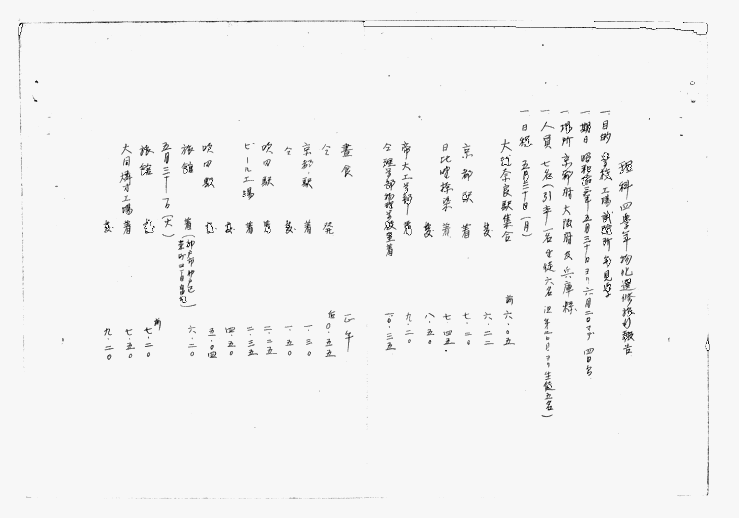 理科四学年物化選修旅行報告
一目的 学校工場試験所等見学
一期日 昭和 三年五月三十日ヨリ六月二日マデ四日間
一場所 京都府大阪府及兵庫県
一人員 七名(引率一名生徒六名 但 ヨリ生徒五名)
一日程 五月三十日(月)
大阪奈良駅集合 前六.〇五
発 六.二二
京都駅 着 七.二〇
日比 染 着 七.四五
発 八.五〇
帝大工学部 着 九.二〇
仝理学部物理学教室着 一〇.三五
昼食 正午
仝 発 后〇.五五
京都駅 着 一.三〇
仝 発 一.五〇
吹田駅 着 二.二五
ビール工場 着 二.三五
発 四.五〇
吹田駅 発 五.〇四
旅館 着(神戸市神戸区 町四丁目 ) 六.二〇
五月三十一日(火)
旅館 発 前七.二〇
大同燐寸工場着 七.五〇
発 九.二〇